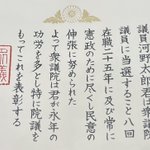 議員河野太郎君は衆議院
議員に当選すること八回
在職二十五年に及び常に
憲政のために尽くし民意の
伸張に努められた
よって衆議院は君が永年の
功労を多とし特に院議を
もってこれを表彰する